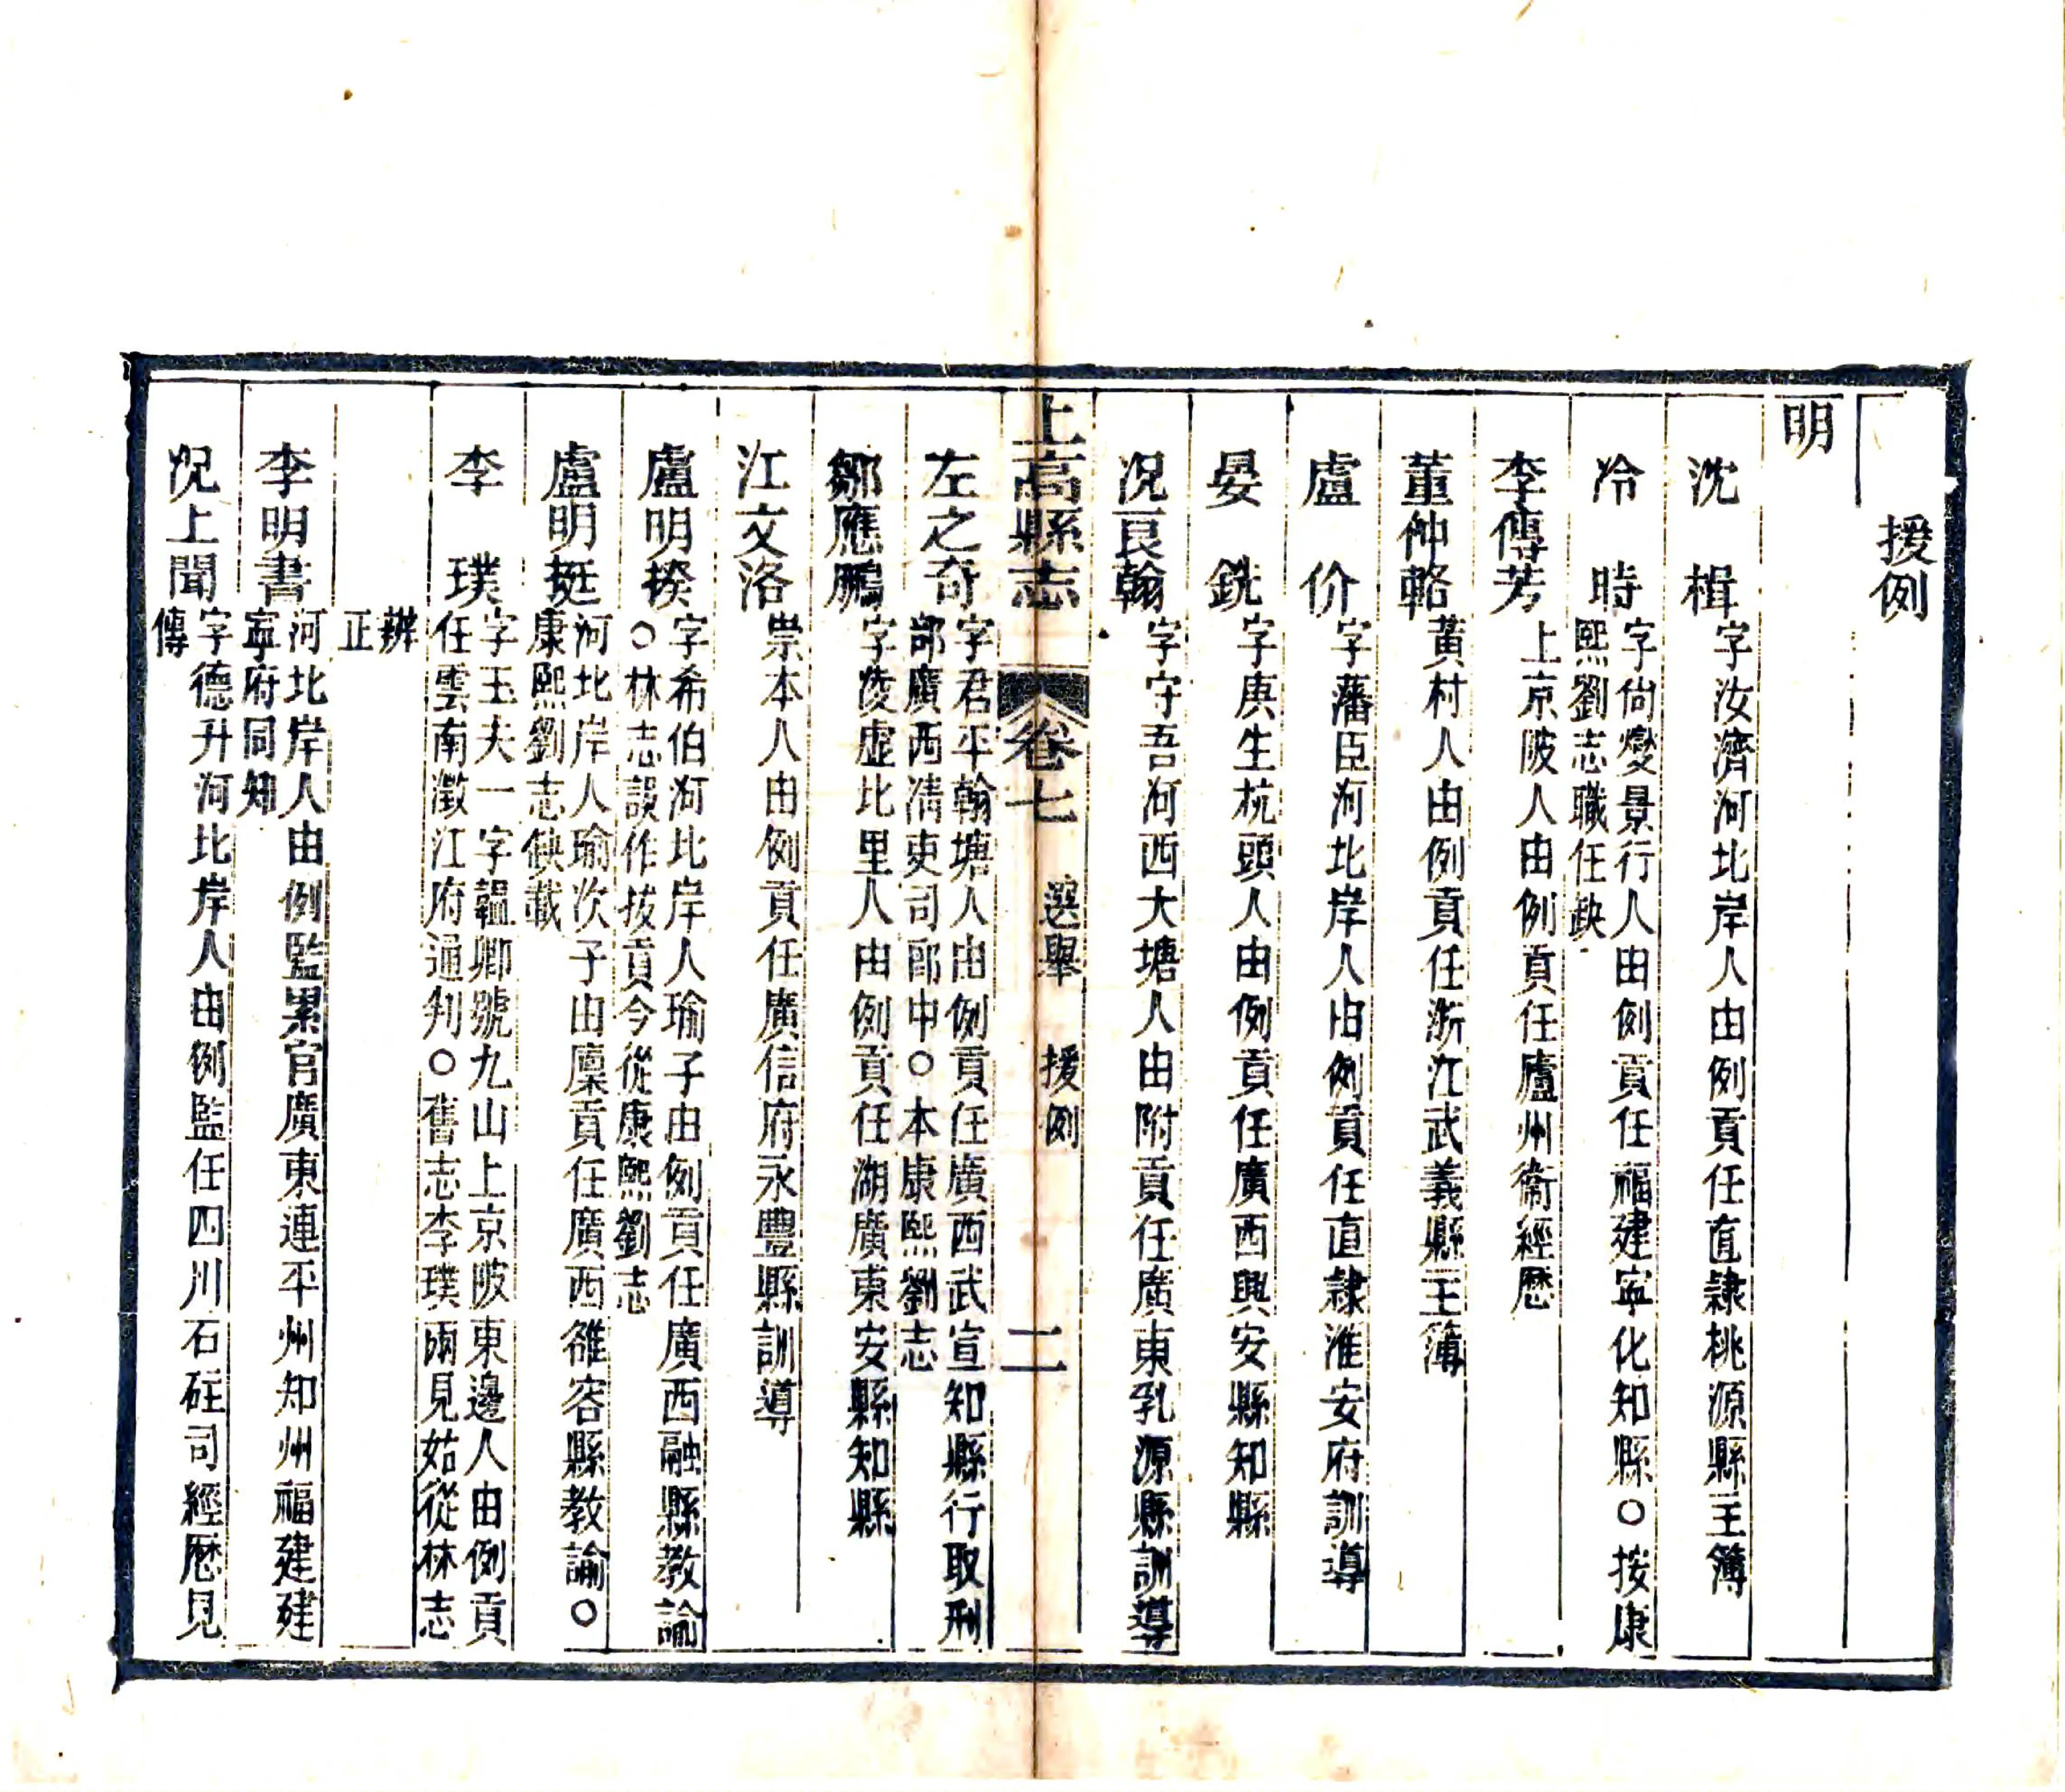 援例
明
沈楫字汝濟河北岸人由例貢任直隷桃源縣主簿
冷時字尙燮景行人由例貢任福建寧化知縣○按康
熙劉志職任缺
李傳芳上京陂人由例貢任廬州衞經歷
董仲輅黃村人由例貢任浙江武義縣主簿
盧价字藩臣河北岸人由例貢任直隷淮安府訓導
晏銑字庚生杭頭人由例貢任廣西興安縣知縣
况良翰字守吾河西大塘人由附貢任廣東乳源縣訓導
上高縣志 卷七 選舉 援例 二
左之奇字君平翰塘人由例貢任廣西武宣知縣行取刑
部廣西淸吏司郎中○本康熙劉志
鄒應鵬字陵虛北里人由例貢任湖廣東安縣知縣
江文洛崇本人由例貢任廣信府永豐縣訓導
盧明揆字希伯河北岸人瑜子由例貢任廣西融縣教諭
○林志誤作拔貢今從康熙劉志
盧明挺河北岸人瑜次子由廩貢任廣西雒容縣教諭○
康熙劉志缺載
李璞字玉夫一字韞卿號九山上京陂東邊人由例貢
任雲南澂江府通判○舊志李璞兩見姑從林志
辨
正
李明書河北岸人由例監累官廣東連平州知州福建建
寧府同知
况上聞字德升河北岸人由例監任四川石砫司經歷見
傳